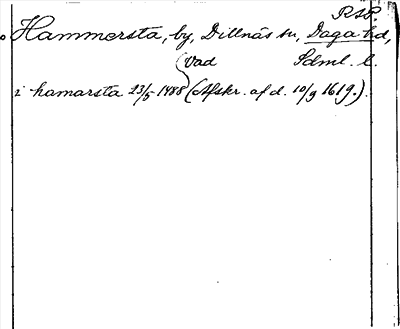 RAP.
Hammersta, by, Dillnäs sn, Daga hd,
(vad Sdml. l.
i hamarsta 23/5 1488 (Afskr. af d. 10/9 1619.).